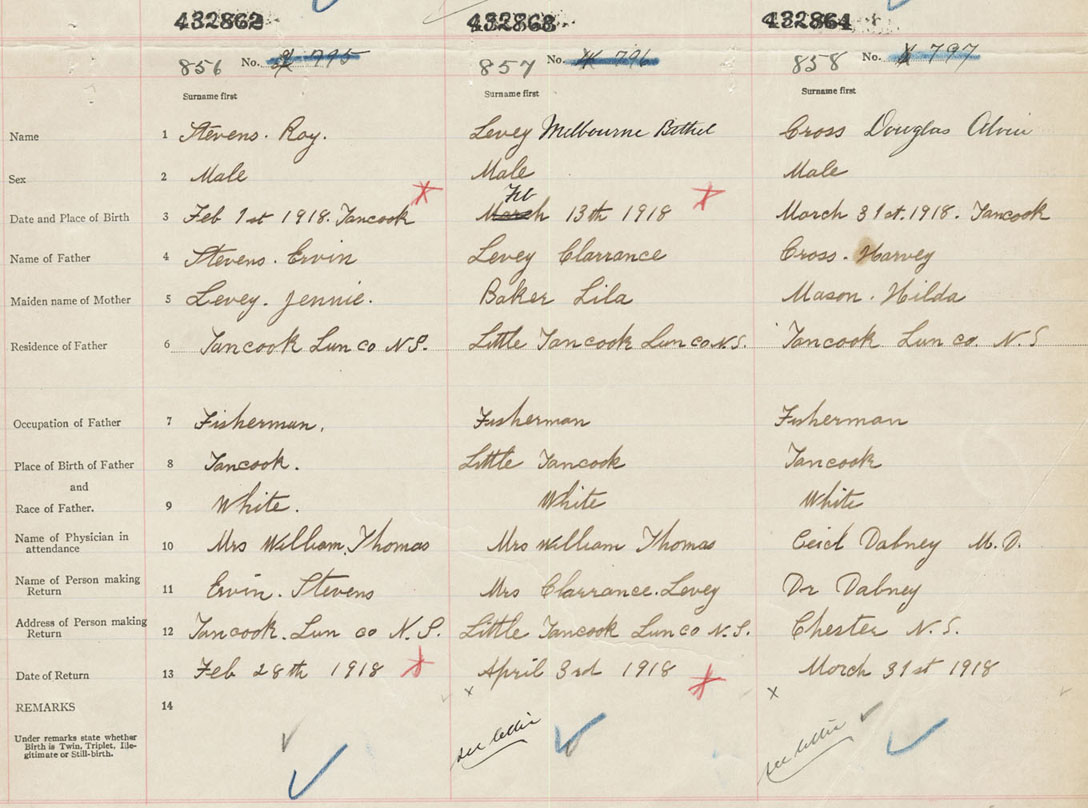 432862 432863 432864
856 No. 795 857 No. 796 858 No. 797
Surname first Surname first Surname first
Name 1 Stevens. Roy. Levey Melbourne Bethel Cross Douglas Alvin
Sex 2 Male Male Male
Feb
Date and Place of Birth 3 Feb 1st 1918. Tancook March 13th 1918 March 31st. 1918. Tancook
Name of Father 4 Stevens. Ervin Levey Clarrance Cross. Harvey
Maiden name of Mother 5 Levey. Jennie. Baker Lila Mason. Hilda
Residence of Father 6 Tancook Lun co N.S. Little Tancook Lun co N.S. Tancook Lun co. N.S
Occupation of Father 7 Fisherman. Fisherman Fisherman
Place of Birth of Father 8 Tancook. Little Tancook Tancook
and
Race of Father. 9 White. White White
Name of Physician in
attendance 10 Mrs William. Thomas Mrs William Thomas Cecil Dabney M.D.
Name of Person making
Return 11 Ervin. Stevens Mrs Clarrance. Levey Dr Dabney
Address of Person making
Return 12 Tancook. Lun co N.S. Little Tancook Lun co N.S. Chester N.S.
Date of Return 13 Feb 28th 1918 April 3rd 1918 March 31st 1918
REMARKS 14
Under remarks state whether
Birth is Twin, Triplet, Ille-
gitimate or Still-birth.
see letter see letter